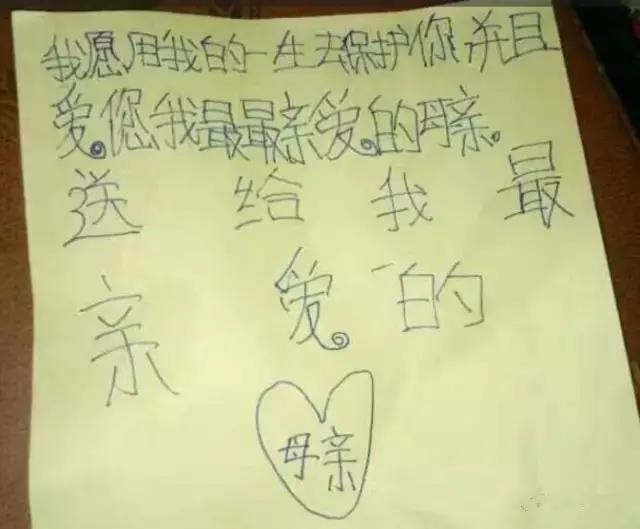 我愿用我的一生去保护你并且
爱您我最最亲爱的母亲
送给我最
亲爱的
母亲